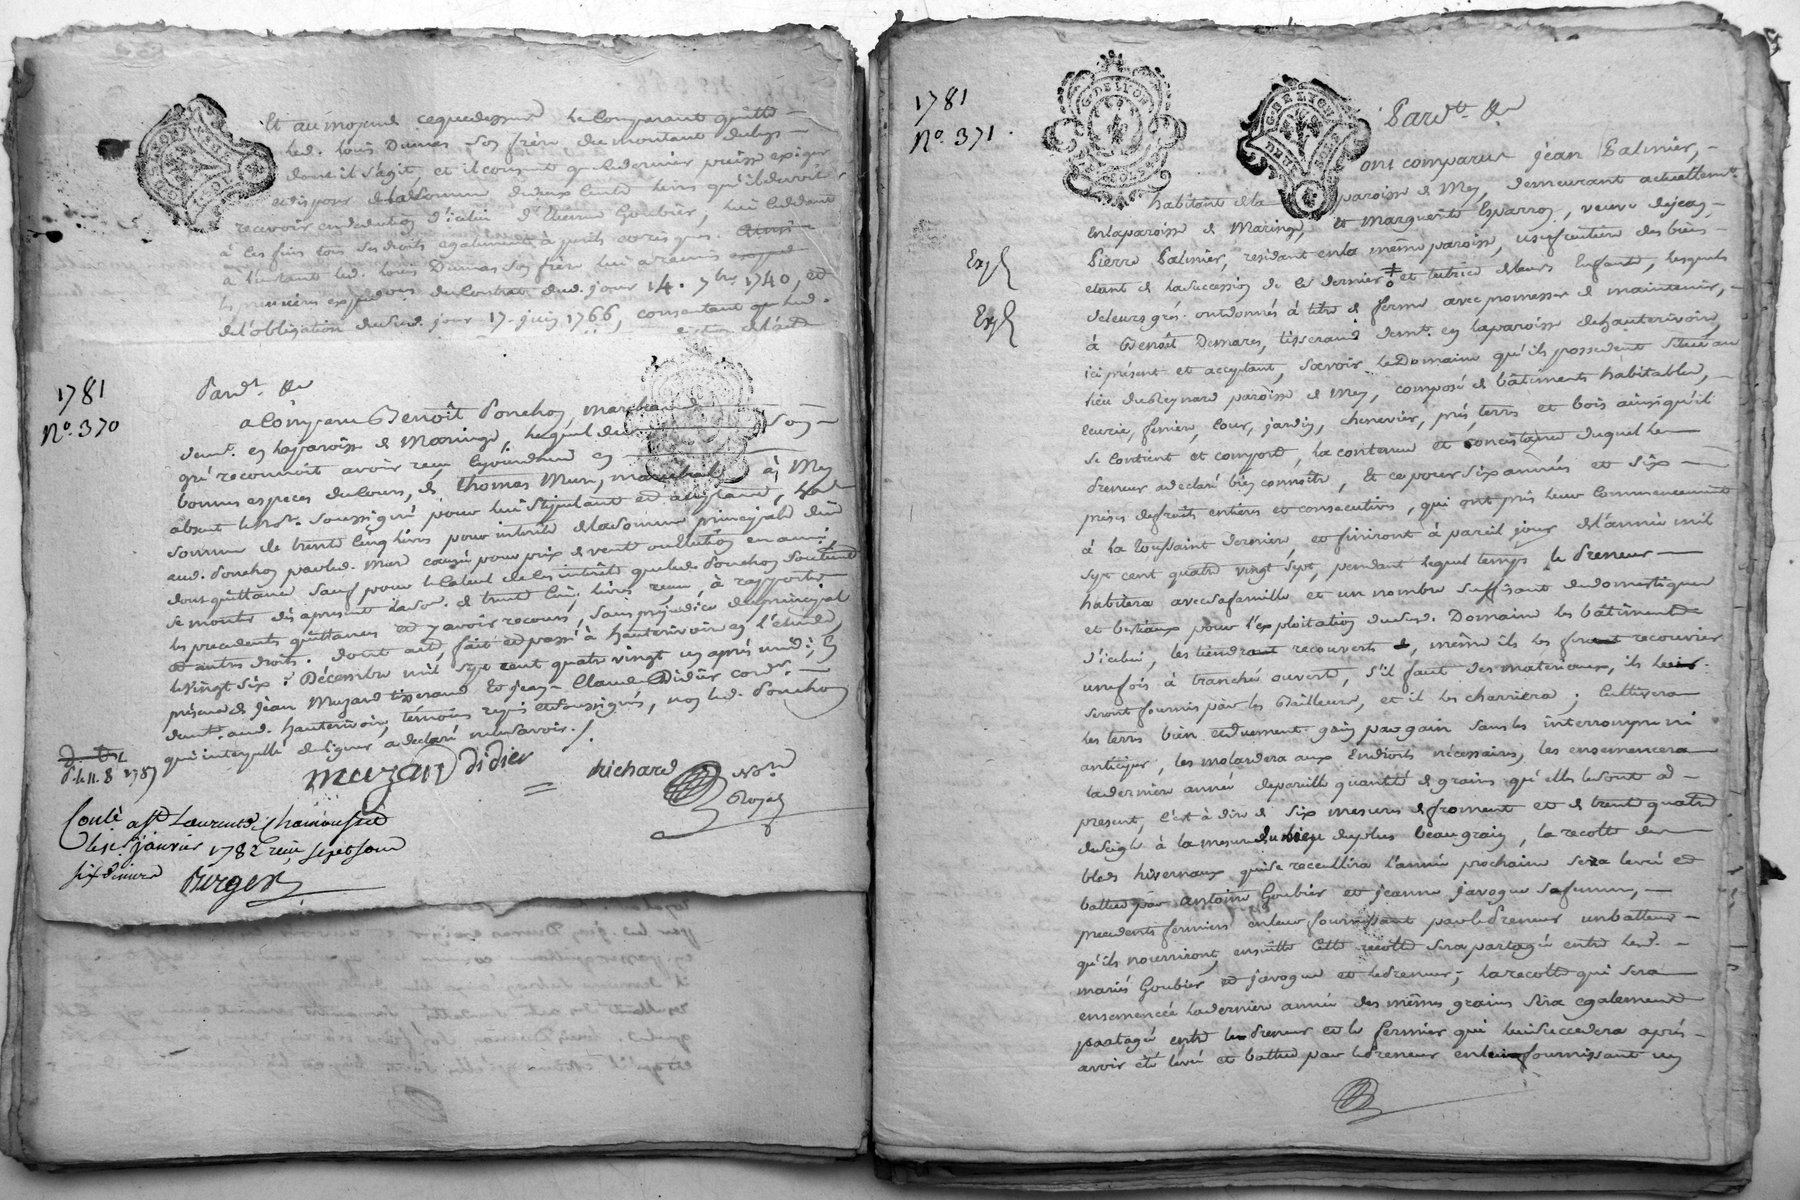 Et au moyend cequedessus le Comparant quitte
led. loüis Dumas Son frère, du montant du legs
dont il s'agit, et il consent que le dernier puisse exiger
et disposer de la Somme de deux Cents livres qu'il devoit
recevoir en deduction d'icelui d'Etienne Goubier, lui Cédant
à Ces fins tous Ses droits egalement à perils et risques.
à l'instant led. Loüis Dumas Son frère lui a remis
les premières expéd.ons du Contrat dud. jour 14. 7bre 1740, et
de l'obligation dusud. jour 17. juin 1766, consentant que led.
1781
N.o 370
Pard.t &a
a Comparu Benoît Ponchon marchand
demt. en la paroisse de Maringe, lequel de Son
gré reconnoit avoir reçu Cejourdhui en
bonnes especes du Cours, de Thomas Mure, marchand à Mey
absent le not.e Soussigné pour lui Stipulant et acceptant, la
Somme de trente Cinq livres pour intérêts de la Somme principale düe
aud. Ponchon par led. Mure
dont quittance Sauf pour le Calcul de les intérêts que led. Ponchon Soutient
se monter dès àprésent à la So. de trente Cinq livres reçue, à rapporter
les precedents quittances et y avoir recours, Sans préjudice du principal
et autres droits. dont acte, fait et passé à hauterivoire en l'étude,
le vingt Six Décembre mil Sept cent quatre vingt un après midi; En
présence de Jean Muzard tisserand et Jean-Claude Didier cord.r
demt. aud. hauterivoire, témoins requis et Soussignés, non led. Ponchon
qui interpellé de Signer a declaré ne Savoir./.
muzard Didier
Richard Not.e
Royal
Conlé à St Laurent de Chamousset
le janvier 1782 reçu sept sous
six deniers
Burger
1781
N.o 371.
Pard.t &a
Ont comparus jean Palmier,
habitant de la paroisse de Mey, demeurant actuellemt.
en la paroisse de Maringe, et Marguerite Esparron, veuve de jean
Pierre Palmier, residant en la même paroisse, usufruitiere des biens
etant de la Succession de ce dernier et tutrice de leurs Enfants, lesquels
de leurs grés ont donnés à titre de ferme avec promesse de maintenir,
à Benoît Demares, tisserand demt. en la paroisse de hauterivoire,
ici présent et acceptant, Sçavoir le Domaine qu'ils possedent Situé au
lieu du Reynard paroisse de Mey, composé de bâtiments habitables,
écurie, fenière, Cour, jardin, chenevier, prés, terres et bois ainsi qu'il
Se Contient et comporte, la contenue et consistance duquel le
Preneur a declaré bien connoître, Et ce pour Six années et Six
prises de fruits entiers et consecutives, qui ont pris leur Commencement
à la toussaint dernier et finiront à pareil jour de l'année mil
Sept cent quatre vingt Sept, pendant lequel temps le Preneur
habitera avec Sa famille et un nombre Suffisant de domestiques
et bestiaux pour l'exploitation dusud. Domaine les bâtiments
d'icelui, les tiendra recouverts, même il les recouvrir
une fois à tranché ouvert, S'il faut des materiaux, ils
Seront fournis par les Bailleurs, et il les charriera; Cultivera
les terres bien et duement gain par gain Sans les interrompre ni
anticiper, les molardera aux Endroits nécessaires, les ensemencera
la derniere année de pareille quantité de grains qu'elles le Sont à
present, C'est à dire de Six mesures de froment et de trente quatre
de Seigle à la mesure du lieu du plus beau grain, la recolte des
bleds hivernaux qui Se recceullira l'année prochaine Sera levée et
battue par Antoine Goubier et jeanne javogue Sa femme,
precedents fermiers en leur fournissant par le Preneur un batteur
qu'ils nourriront, ensuitte Cette recolte Sera partagée entre lesd.
mariés Goubier et javogue et le Preneur; la recolte qui Sera
ensemencée la derniere année des mêmes grains Sera egalement
partagée entre le Preneur et le fermier qui lui Succedera après
avoir été levée et battue par le Preneur en lui fournissant un